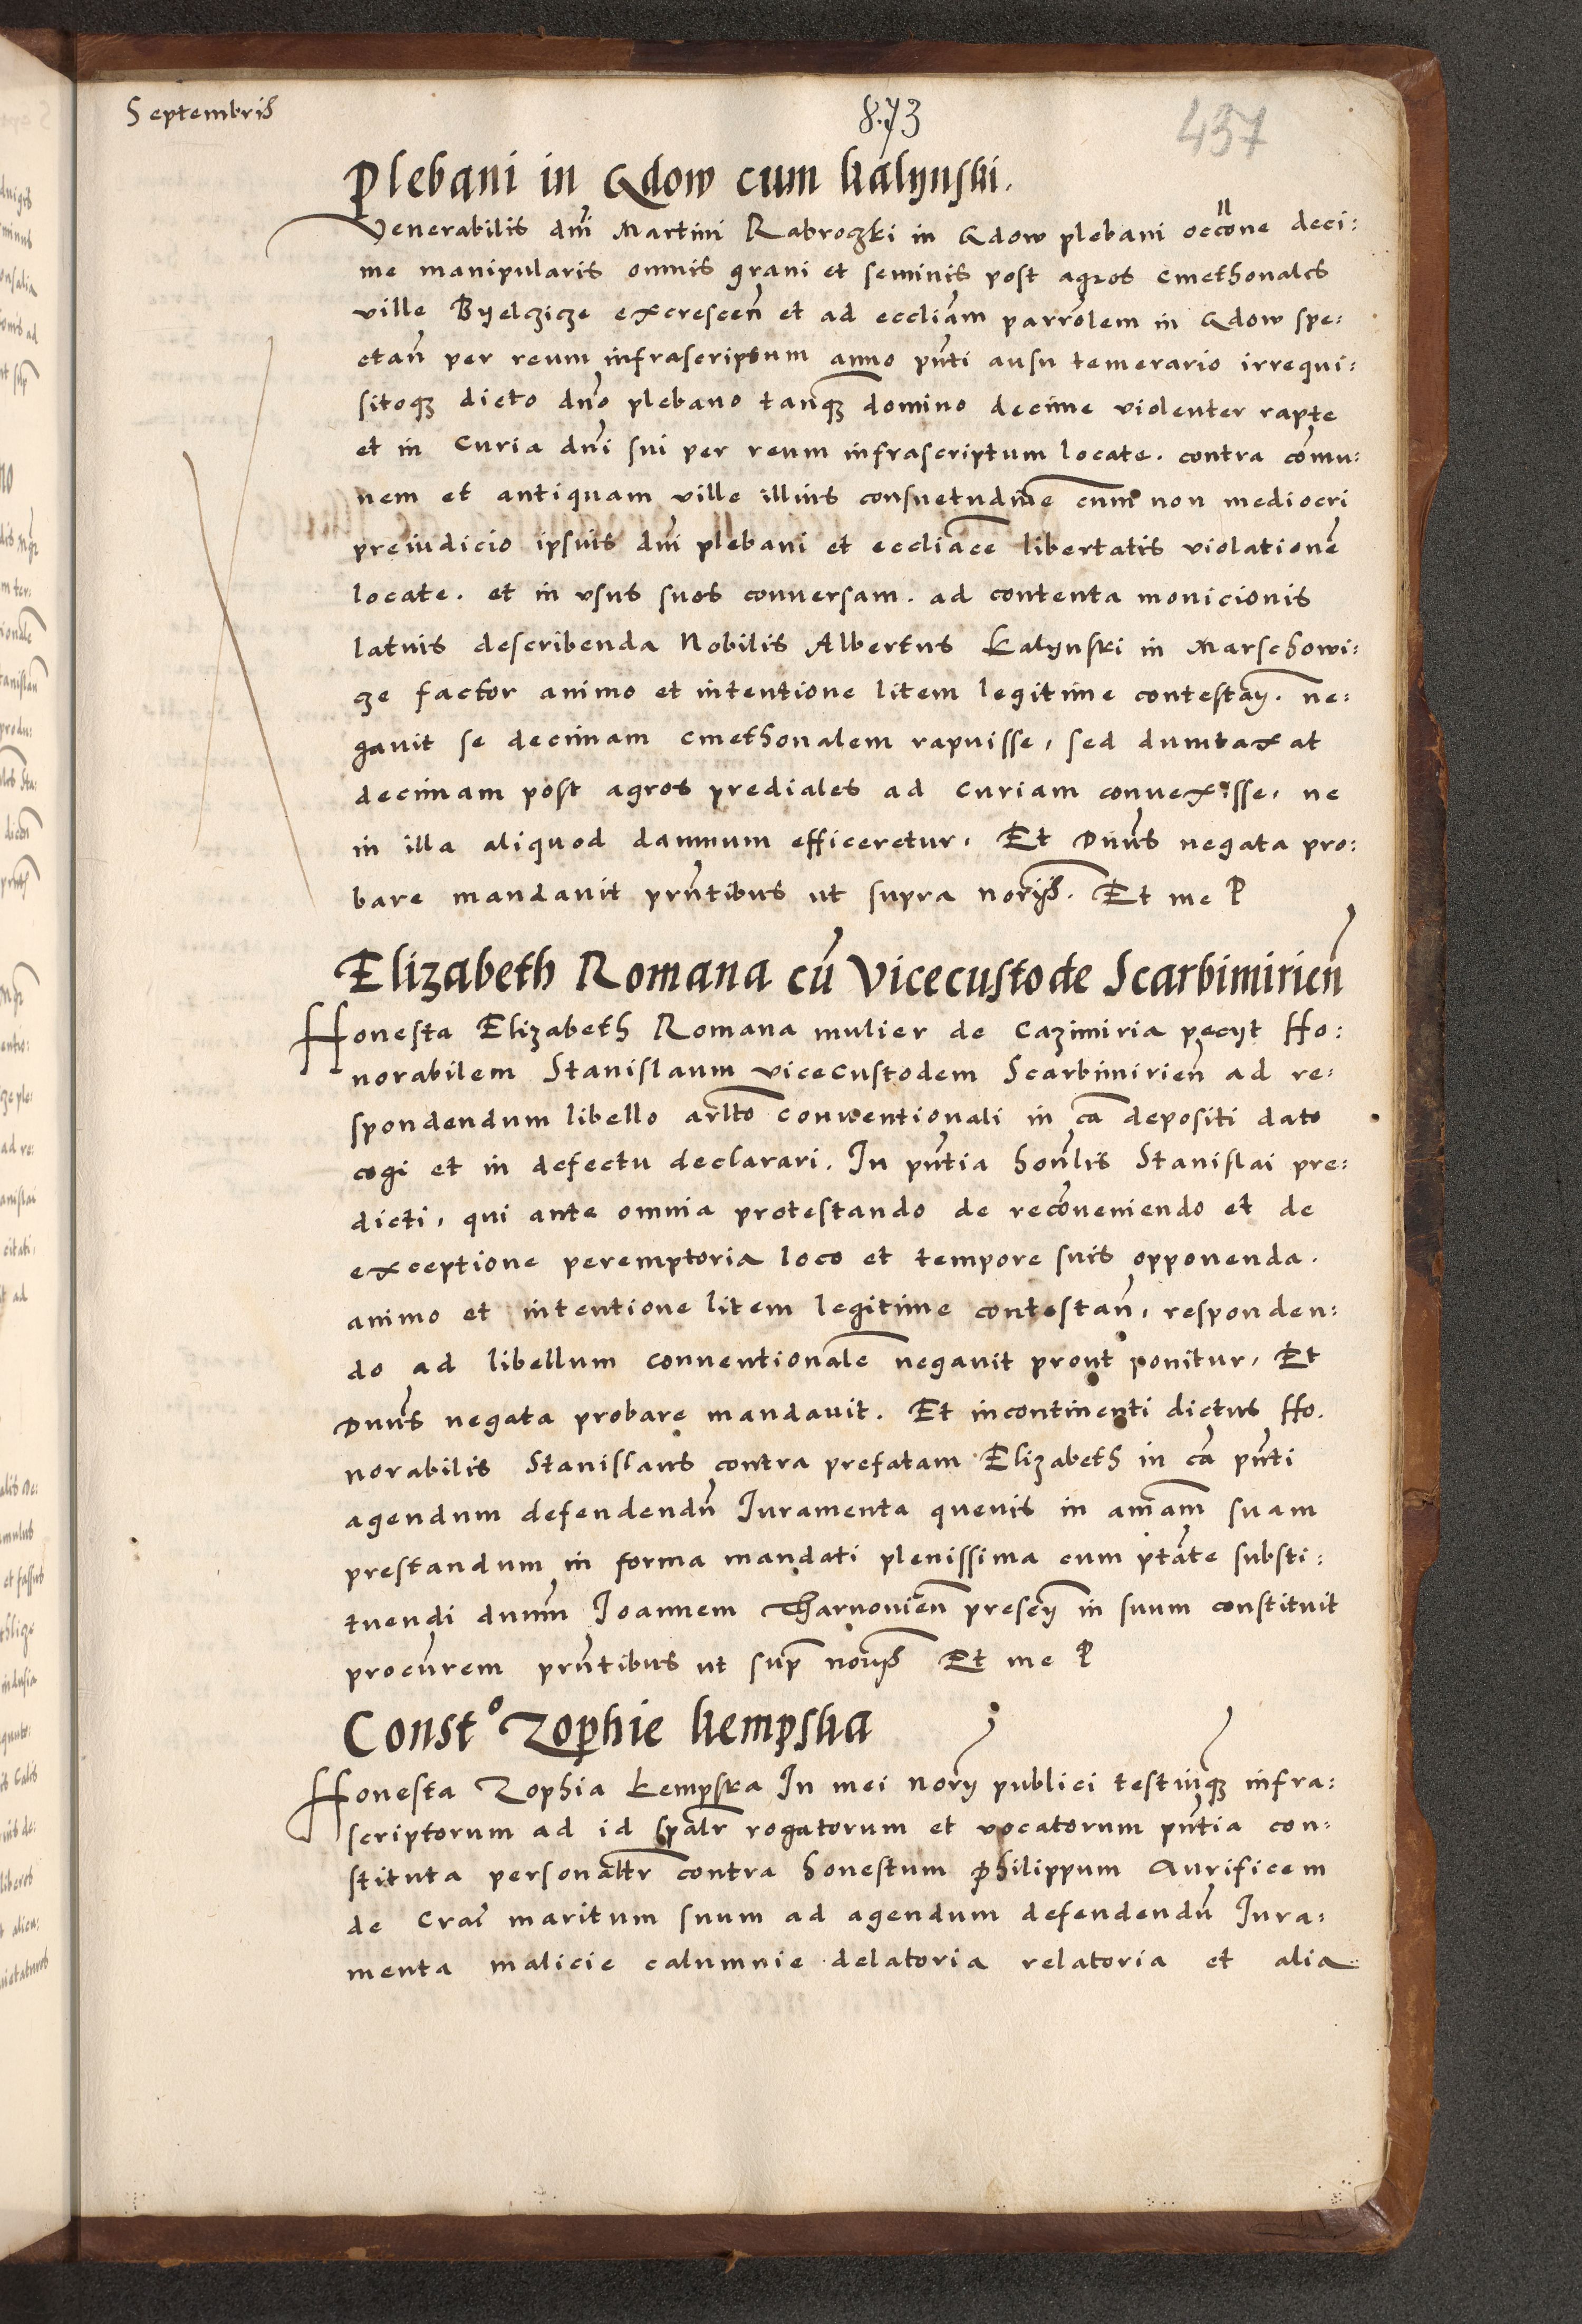 Septembris
873
437
Plebani in Gdow cum Kalynski.
Venerabilis dni Martini Rabroczki in Gdow plebani occone deci:
me manipularis omnis grani et seminis post agros cmethonales
ville Byelczicze excrescen et ad eccliam parrolem in Gdow spe:
ctan per reum infrascriptum anno pnti ausu temerario irrequi:
sitoqz dicto dno plebano tanqz domino decime violenter rapte
et in Curia dni sui per reum infrascriptum locate. contra comu:
nem et antiquam ville illius consuetudine cum non mediocri
preiudicio ipsius dni plebani et eccliace libertatis violatione
locate. et in vsus suos conuersam. ad contenta monicionis
latuis describenda Nobilis Albertus Kalynski in Marschowi:
cze factor animo et intentione litem legitime contestan. ne:
gauit se decimam cmethonalem rapuisse, sed dumtaxat
decimam post agros prediales ad curiam conuexisse, ne
in illa aliquod damnum efficeretur. Et Dnus negata pro:
bare mandauit prntibus ut supra norijs. Et me P
Elizabeth Romana cu Vicecustode Scarbimirien
Honesta Elizabeth Romana mulier de Cazimiria pecyt Ho:
norabilem Stanislaum vicecustodem Scarbimirien ad re:
spondendum libello arltto conuentionali in ca depositi dato
cogi et in defectu declarari. In pntia honlis Stanislai pre:
dicti, qui ante omnia protestando de reconueniendo et de
exceptione peremptoria loco et tempore suis opponenda.
animo et intentione litem legitime contestan, responden:
do ad libellum conuentionale negauit prout ponitur. Et
Dnus negata probare mandauit. Et incontinenti dictus Ho.
norabilis Stanislaus contra prefatam Elizabeth in ca pnti
agendum defendendu Iuramenta queuis in aniam suam
prestandum in forma mandati plenissima cum ptate substi:
tuendi dnum Ioannem Tharnouien presen in suum constituit
procurem prntibus ut sup norijs Et me P
Const° Zophie Kempska
Honesta Zophia Kempska In mei nory publici testiuqz infra:
scriptorum ad id spalr rogatorum et vocatorum pntia con:
stituta personaltr contra honestum Philippum Aurificem
de Crac maritum suum ad agendum defendendu Iura:
menta malicie calumnie delatoria relatoria et alia